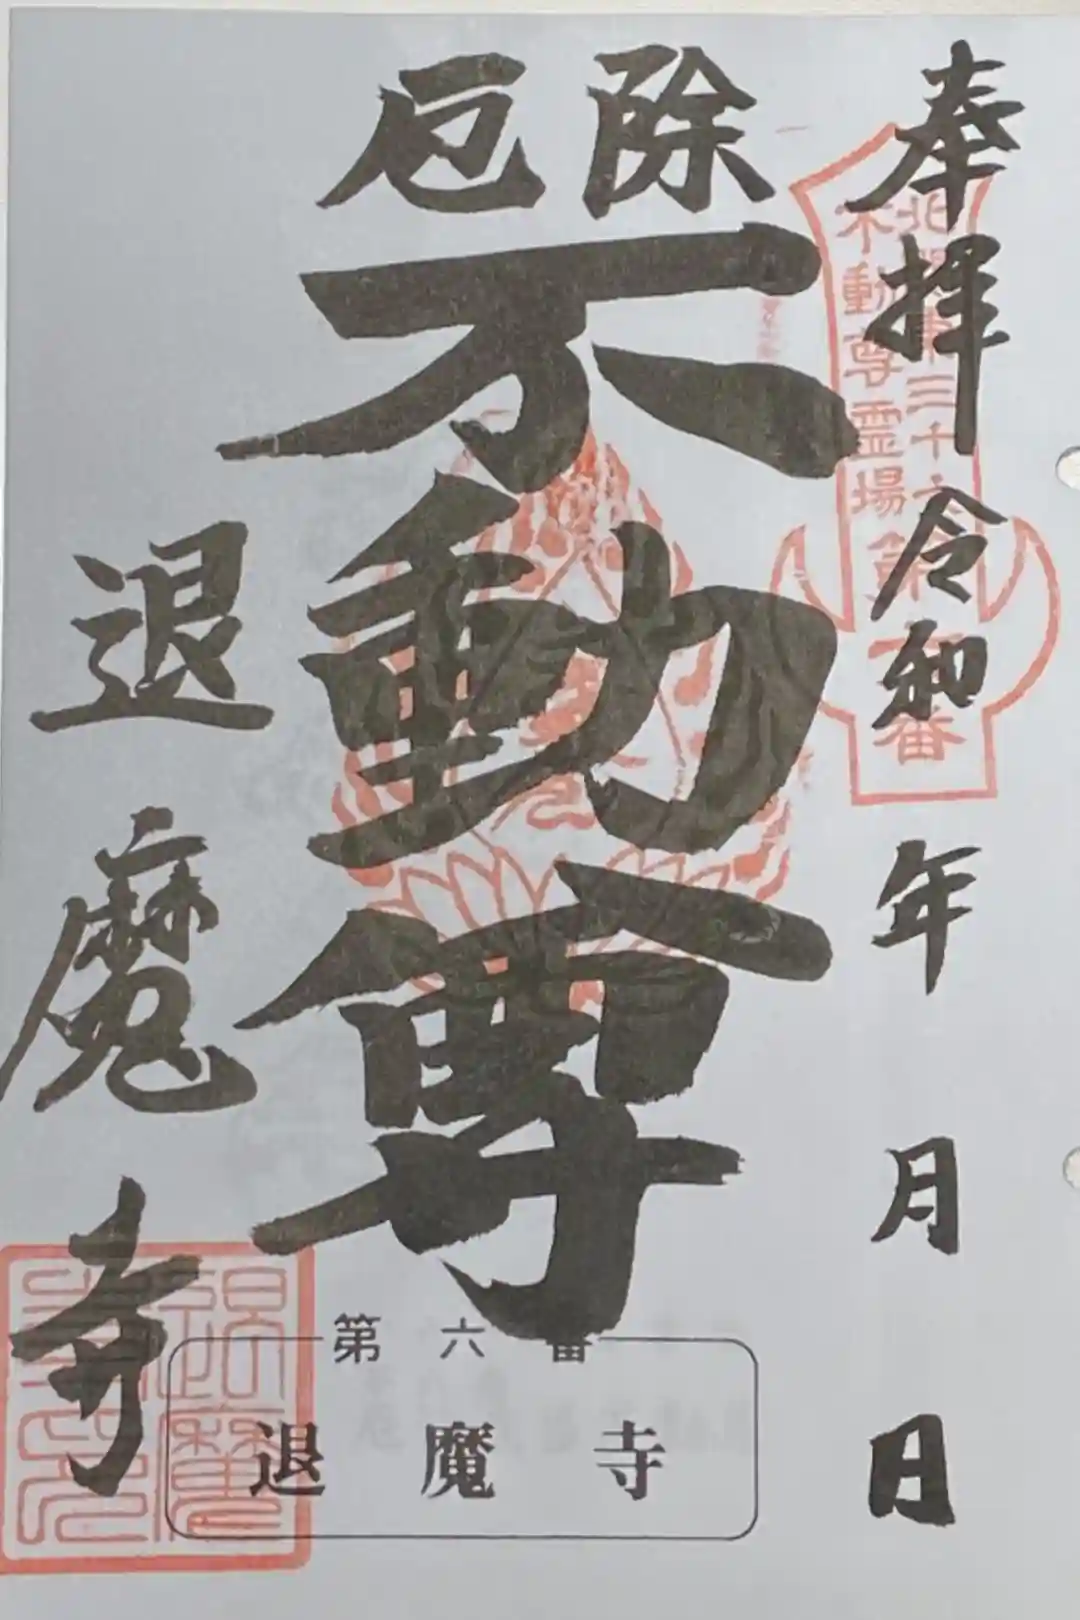 奉拝 令和 年 月 日
北関東三十六
不動尊霊場
第六番
除厄
不動尊
退魔寺
第六番
退魔寺